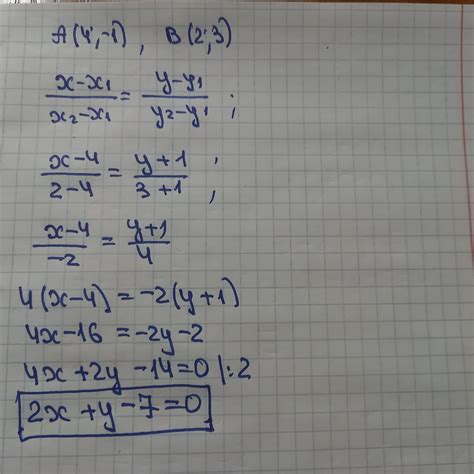 A(4;-1), B(2;3)
(x-x₁)/(x₂-x₁) = (y-y₁)/(y₂-y₁);
(x-4)/(2-4) = (y+1)/(3+1);
(x-4)/(-2) = (y+1)/4
4(x-4)=-2(y+1)
4x-16=-2y-2
4x+2y-14=0 |:2
2x+y-7=0